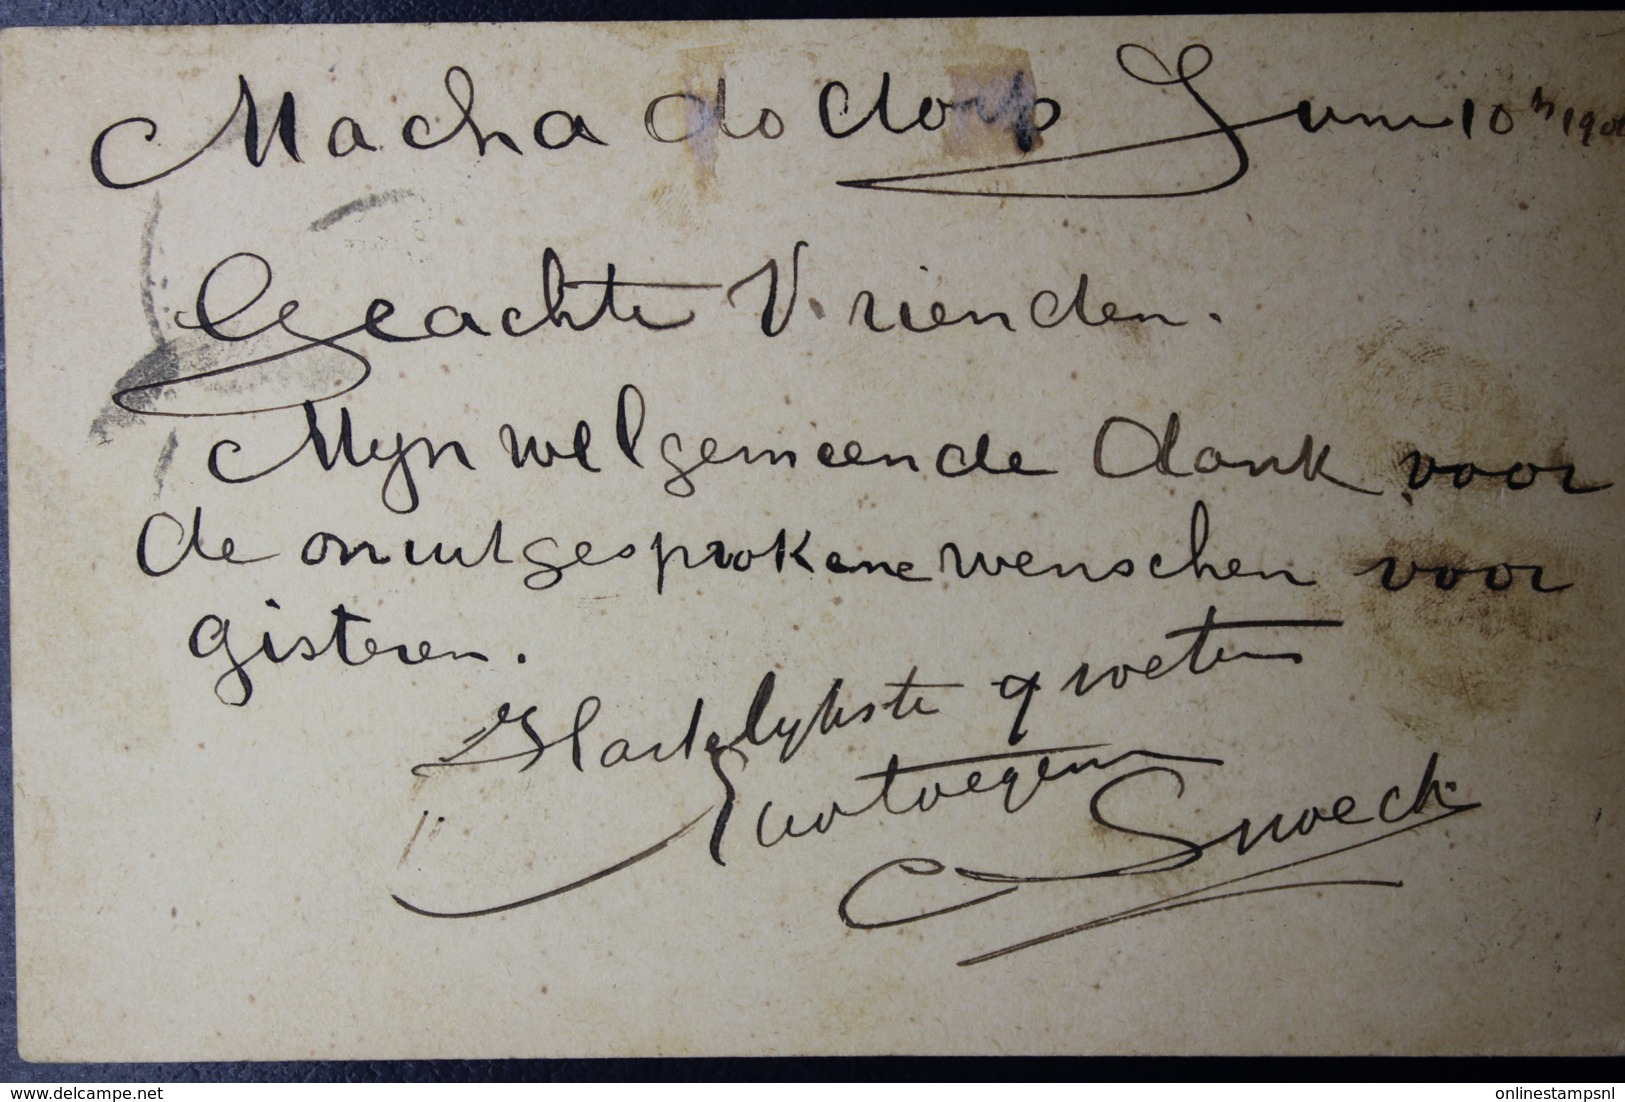 Machadodorp Juni 10th 1900
Geachte Vrienden.
Myn welgemeende dank voor
de onuitgesprokene wenschen voor
gisteren.
Hartelykste groeten
toegen
Snoeck
www.delcampe.net
onlinestampsnl